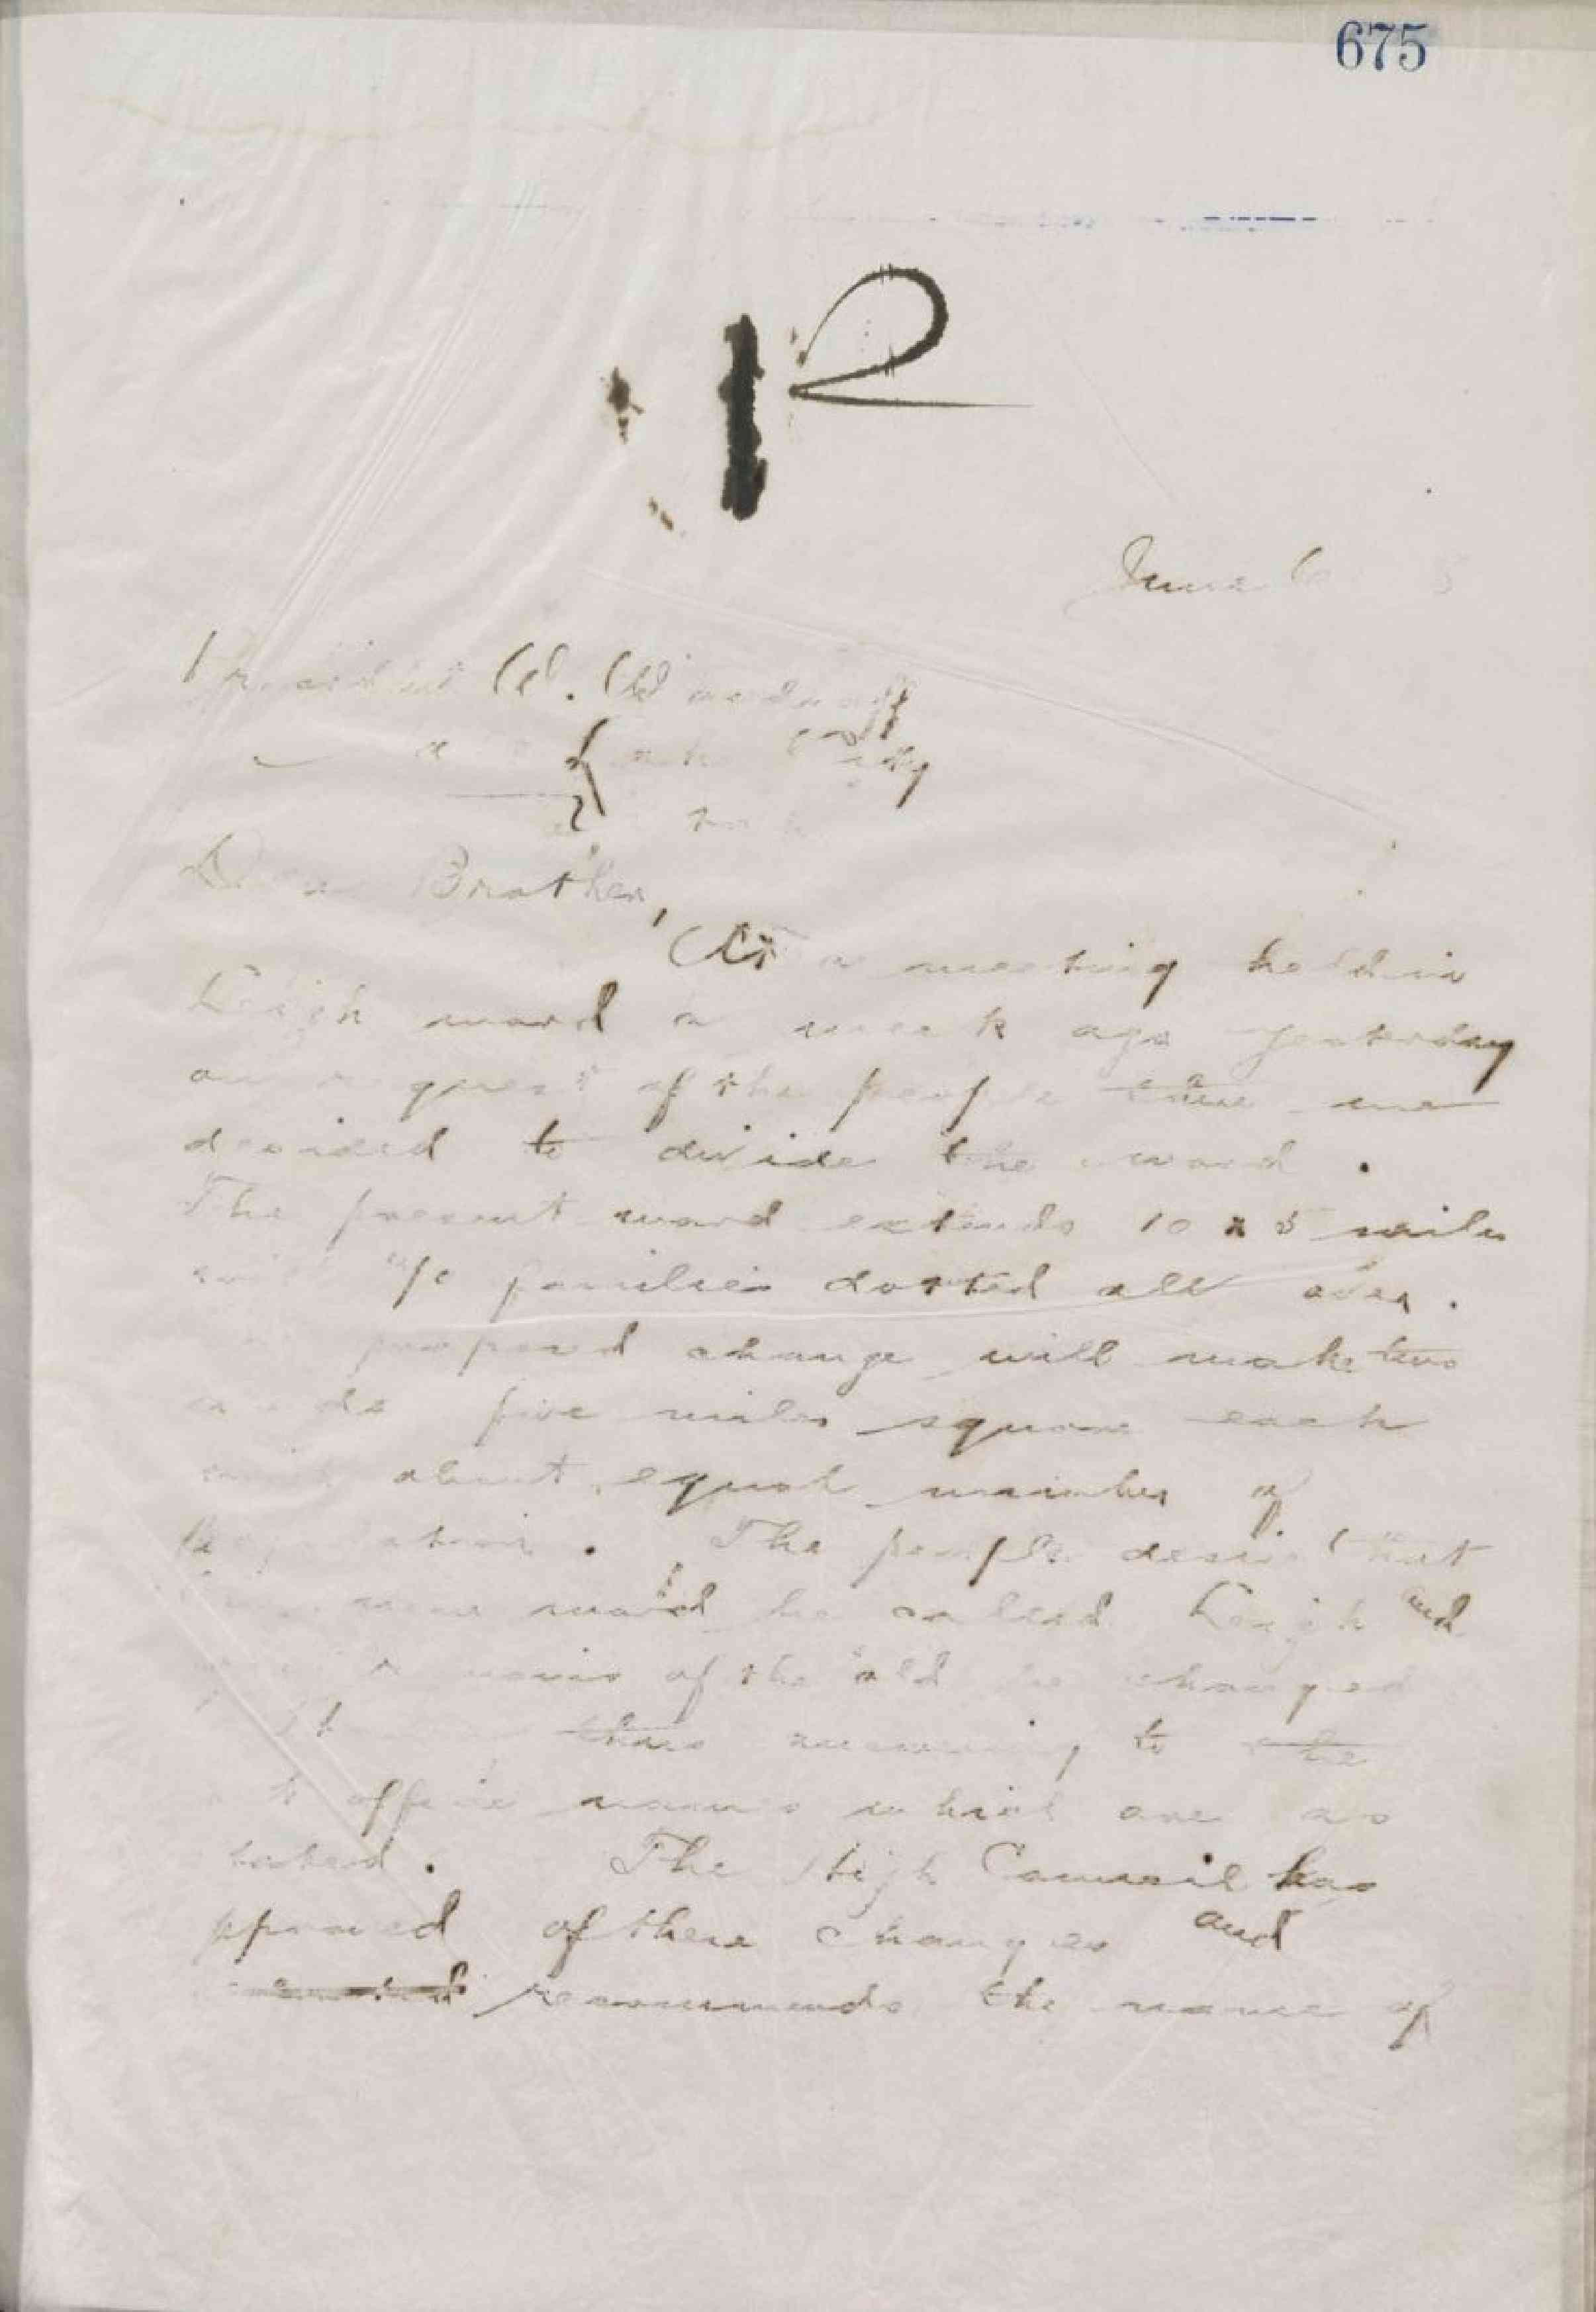 675
12
June 6
President W. Woodruff
Lake City
Dear Brother,
At a meeting held in
Leigh ward a week ago yesterday
on request of the people we
decided to divide the ward.
The present ward extends 10 x 5 miles
families dotted all over.
proposed change will make two
wards five miles square each
with about equal number of
The people desire that
new ward be called Leigh and
name of the old be changed
thus to the
office names which are as
stated. The High Council has
approved of these changes and
recommends the name of